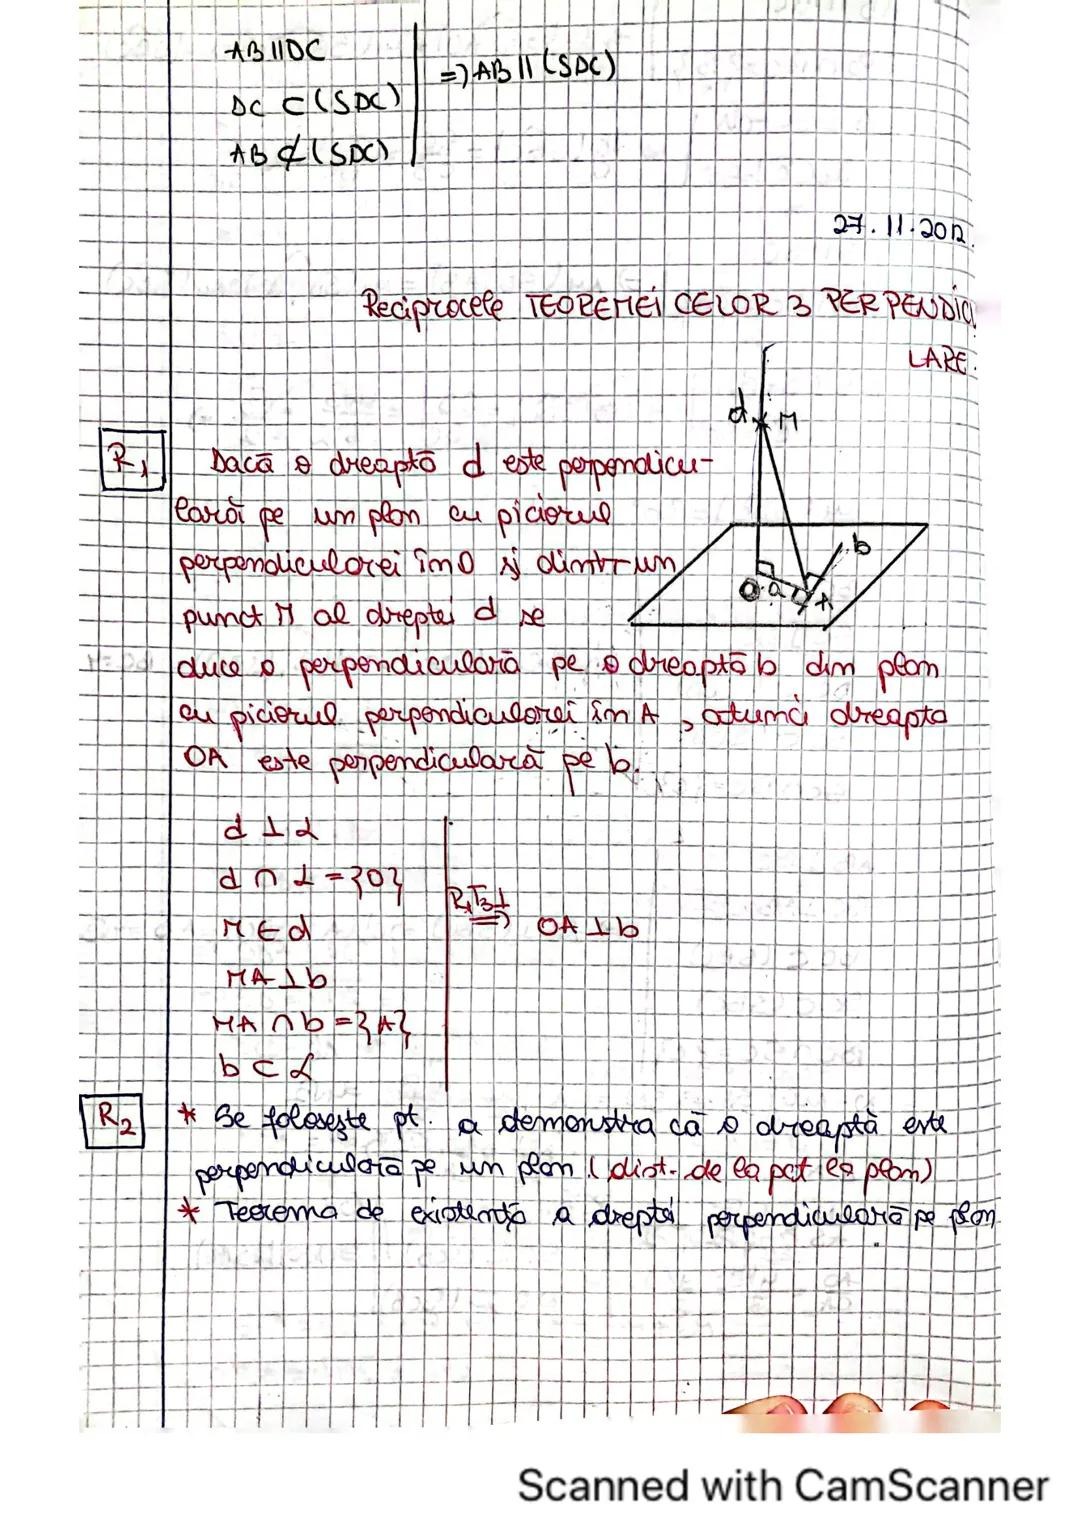 AB || DC
DC ⊂ (SDC)
AB ⊄ (SDC)
=> AB || (SDC)
27.11.2012.
Reciprocele TEOREMEI CELOR 3 PERPENDICU
LARE.
d M
b
O a A
R1
Dacă o dreaptă d este perpendicu-
lară pe un plan cu piciorul
perpendicularei în O și dintr-un
punct M al dreptei d se
duce o perpendiculară pe o dreaptă b din plan
cu piciorul perpendicularei în A, atunci dreapta
OA este perpendiculară pe b.
d ⊥ α
d ∩ α = {O}
M ∈ d
MA ⊥ b
MA ∩ b = {A}
b ⊂ α
R1T3⊥
=> OA ⊥ b
R2
* Se folosește pt. a demonstra că o dreaptă este
perpendiculară pe un plan (dist. de la pct la plan)
* Teorema de existență a dreptei perpendiculară pe plan
Scanned with CamScanner